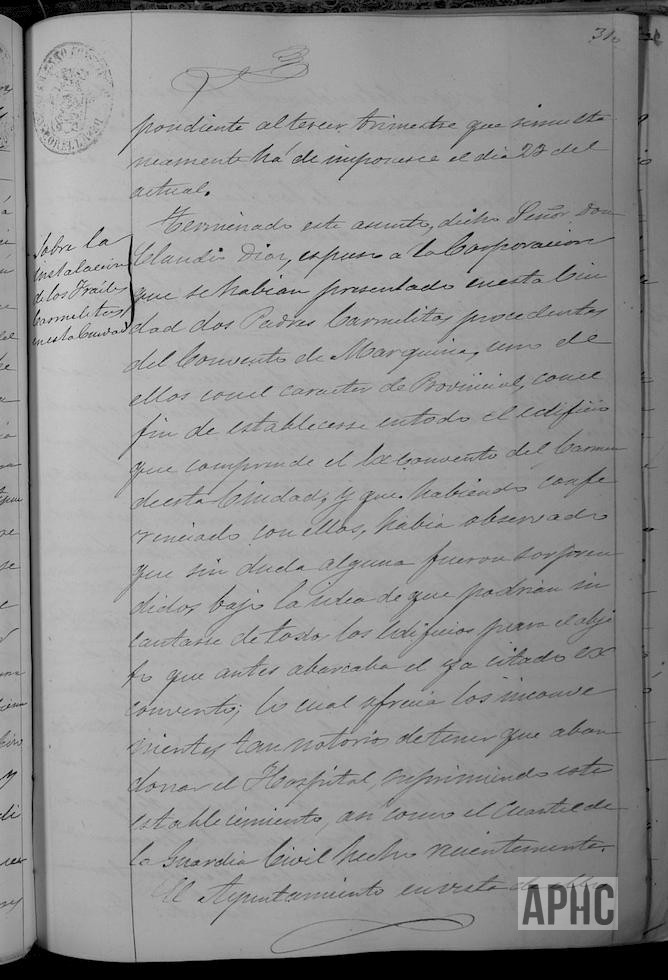 31
pondiente al tercer trimestre que simulta
neamente há de imponerse el dia 27 del
actual.
Sobre la
instalacion
de los Frailes
Carmelitas
en esta Ciudad
Terminado este asunto, dicho Señor Don
Claudio Diaz, espuso a la Corporacion
que se habian presentado en esta Ciu
dad dos Padres Carmelitas procedentes
del Convento de Marquina, uno de
ellos con el caracter de Provincial, con el
fin de establecerse en todo el edificio
que comprende el Ex Convento del Carmen
de esta Ciudad; y que habiendo confe
renciado con ellos, habia observado
que sin duda alguna fueron sorpren
didos bajo la idea de que podrian in
cautarse de todos los edificios para el obje
to que antes abarcaba el ya citado ex
convento; lo cual ofrecia los inconve
nientes tan notorios de tener que aban
donar el Hospital, suprimiendo este
establecimiento, asi como el Cuartel de
la Guardia Civil hecho recientemente.
El Ayuntamiento en vista de ello
APHC